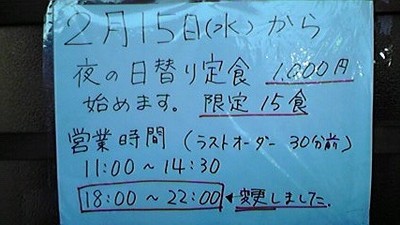 2月15日(水)から
夜の日替り定食 1,000円
始めます。 限定15食
営業時間 (ラストオーダー 30分前)
11:00〜14:30
18:00〜22:00 ◀変更しました。